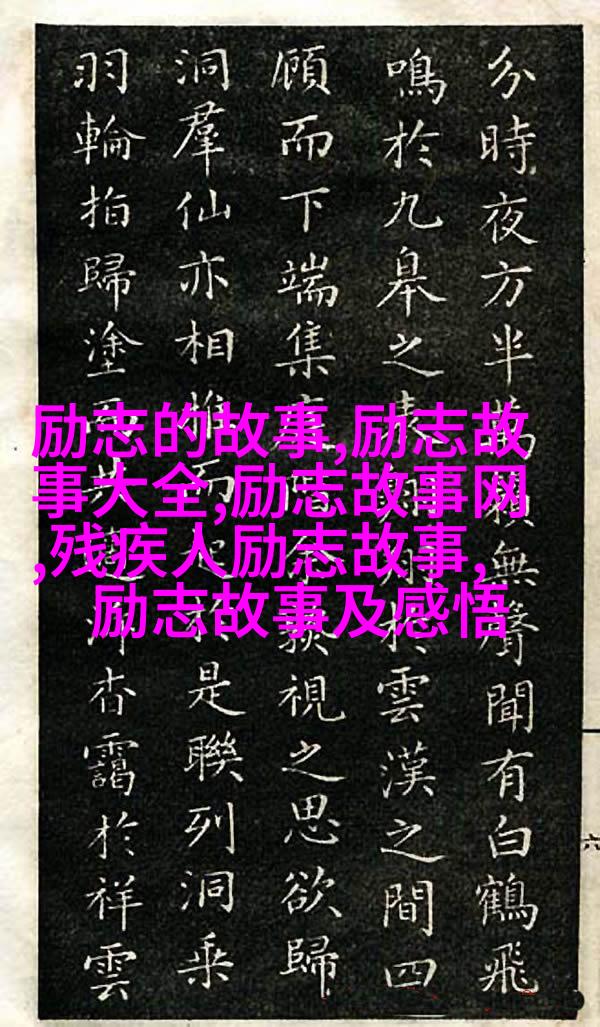 励志的故事,励志故
事大全,励志故事网
,残疾人励志故事,
励志故事及感悟
分時夜方半萬籟無聲聞有白鶴飛
鳴於九皋之表於雲漢之間四
顧而下端集視之思欲歸
洞羣仙亦相是聯列洞乘
羽輪指歸塗杳靄於祥雲
六